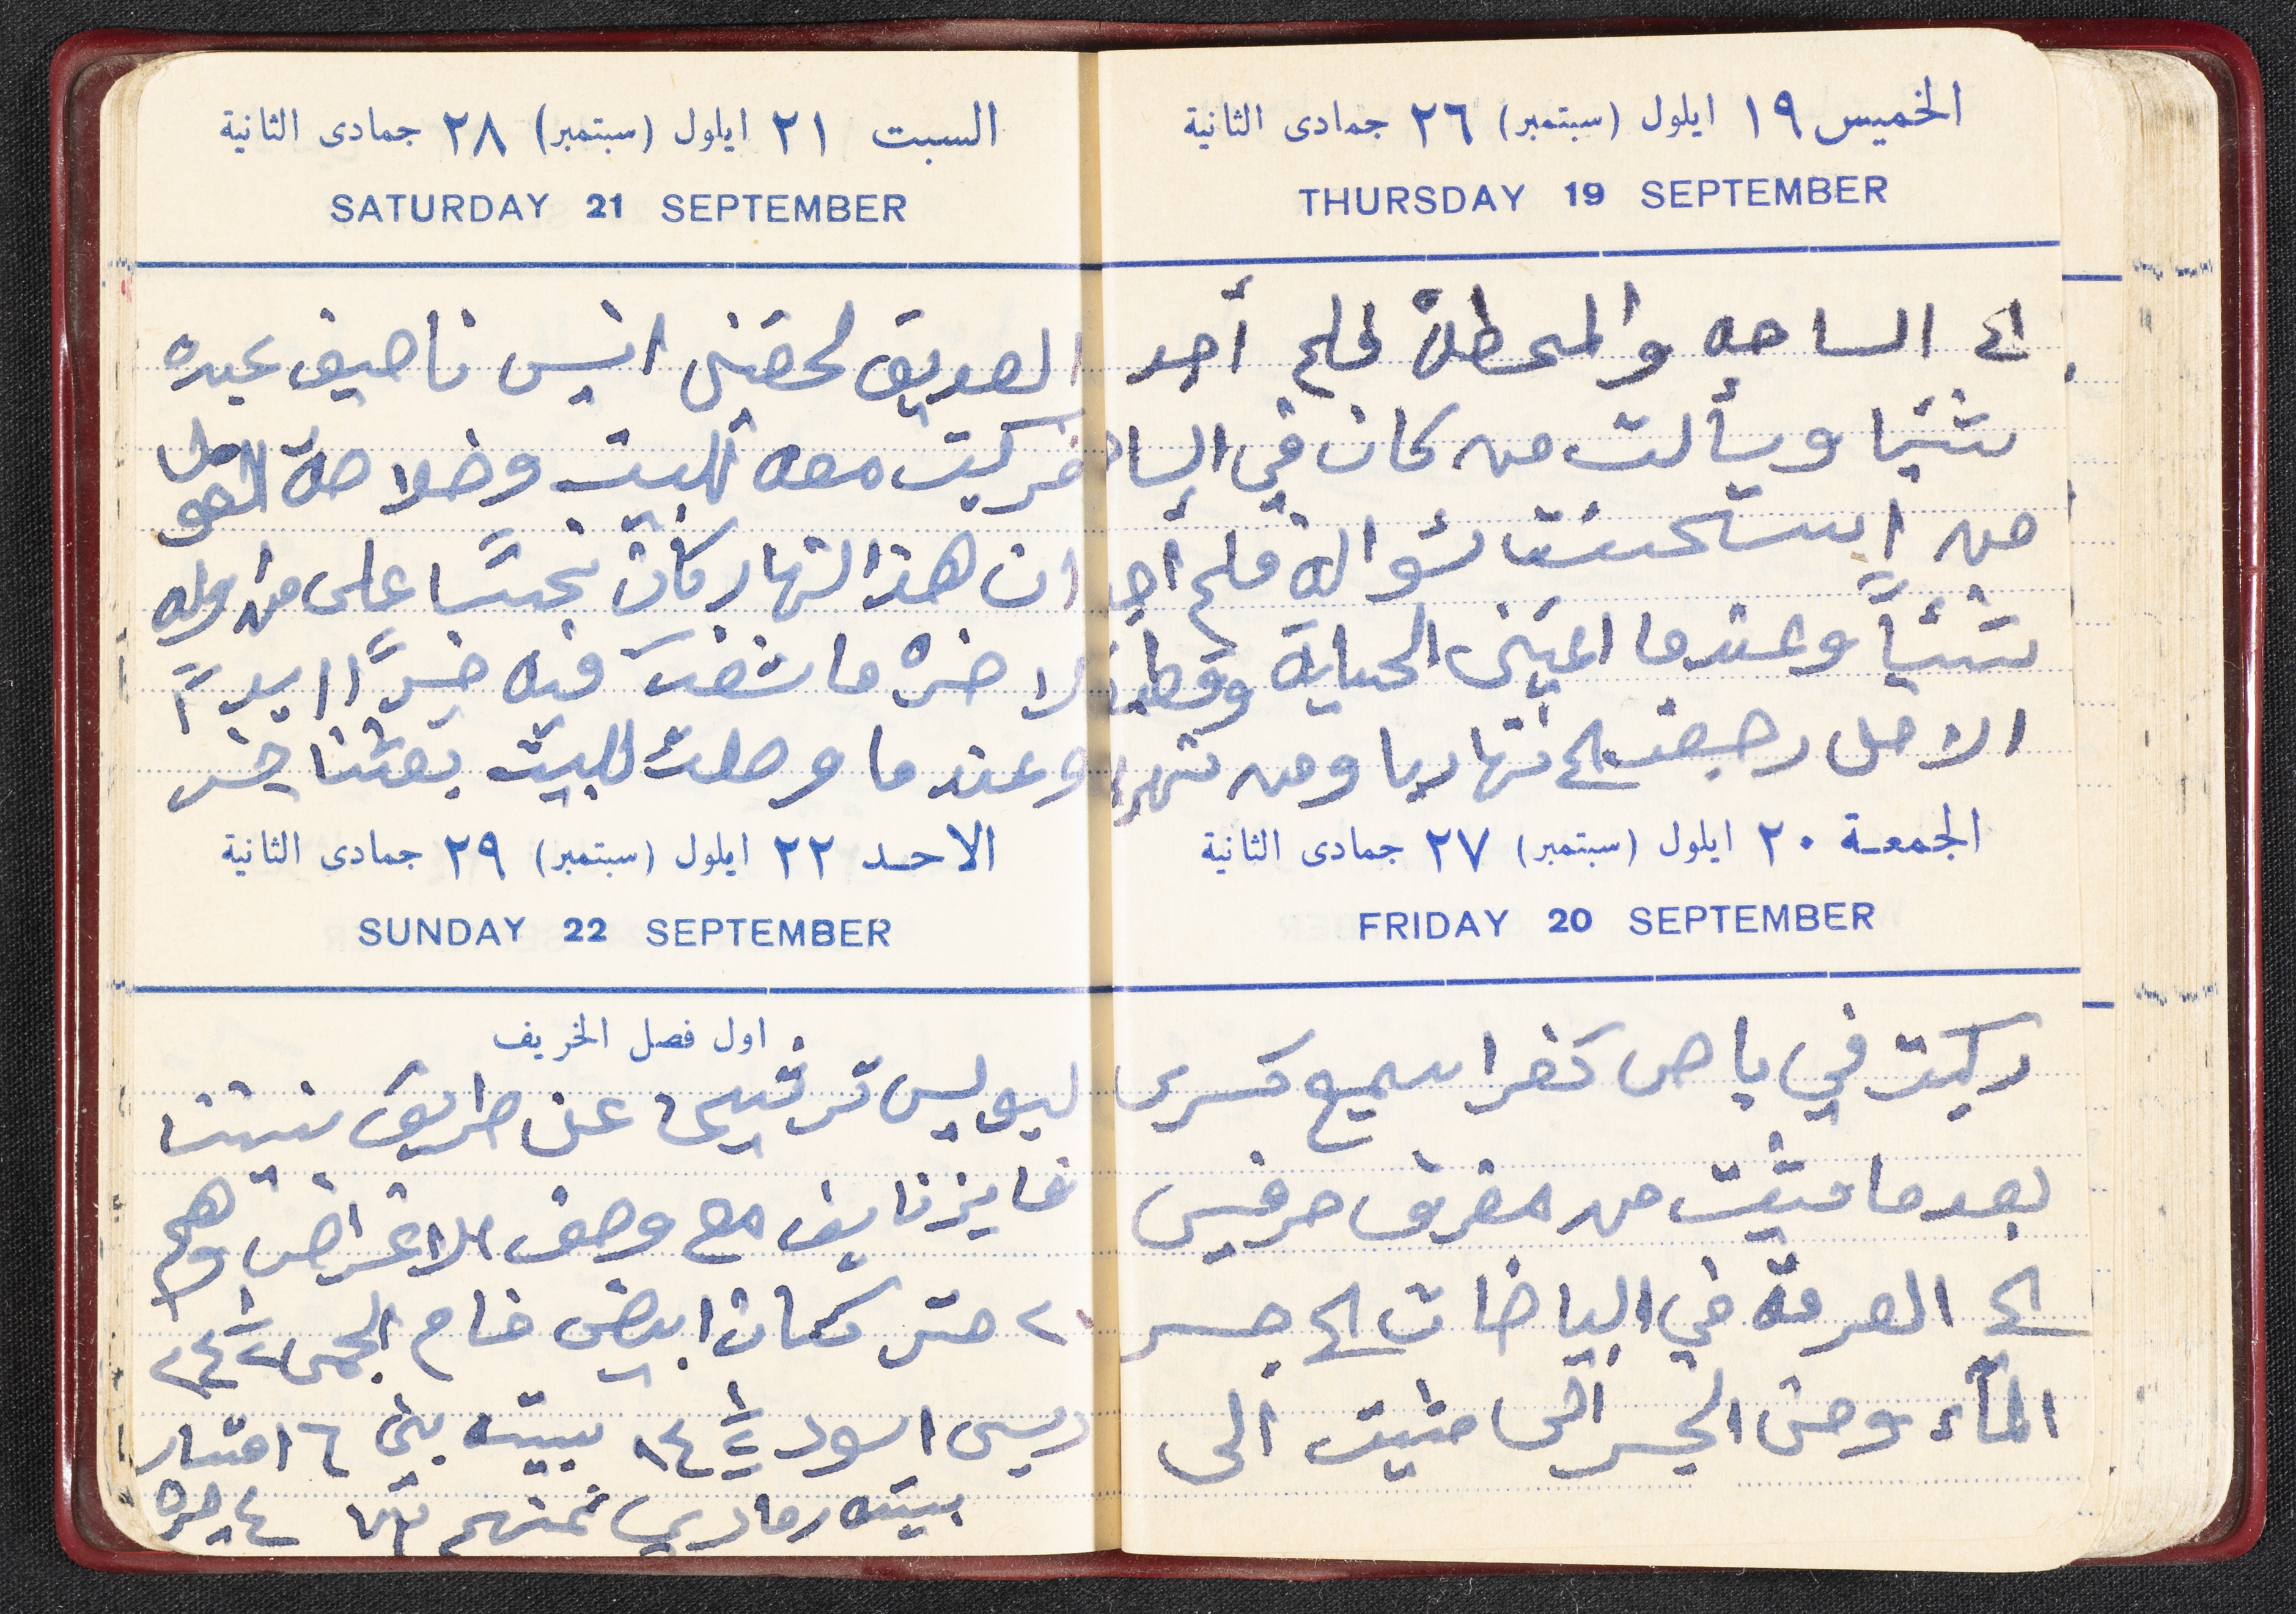 الخميس ١٩ ايلول (سبتمبر) ٢٦ جمادى الثانية
THURSDAY 19 SEPTEMBER
الى الساحه والمحطة فلم أجد
شيئا وسألت من كان في الساحة
من إستحسنت سؤاله فلم أجد
شيئاً وعندما اعيتني الحياية وقطعت
الامل رجعت الى نهاريا ومن نهريا
الجمعة ٢٠ ايلول (سبتمبر) ٢٧ جمادى الثانية
FRIDAY 20 SEPTEMBER
ركبت في باص كفر اسميع كسرى
بعدما مشيت من مفرق حرفيش
الى الصرفة في الباضات الى جسر
الماء ومن الجسر مشيت الى
السبت ٢١ ايلول (سبتمبر) ٢٨ جمادى الثانية
SATURDAY 21 SEPTEMBER
الطريق لحقني انيس ناصيف عبده
فركبت معه للبيت وخلاصة القول
ان هذا النهار كان نحساً على من اوله
لاخره ما شفت فيه خيراً ابداً
وعندما وصلت للبيت بعثنا خبر
الاحد ٢٢ ايلول (سبتمبر) ٢٩ جمادى الثانية
SUNDAY 22 SEPTEMBER
اول فصل الخريف
ليوليس ترشيحا عن طريق بنيتنا
فايز نايف مع وصف الاغراض وهم
٢٠ متر كتان ابيض خام
اسود ١٤ ١/٢ بيته بني ٦ امتار
بيته رمادي ثمنهم ٤ ليره